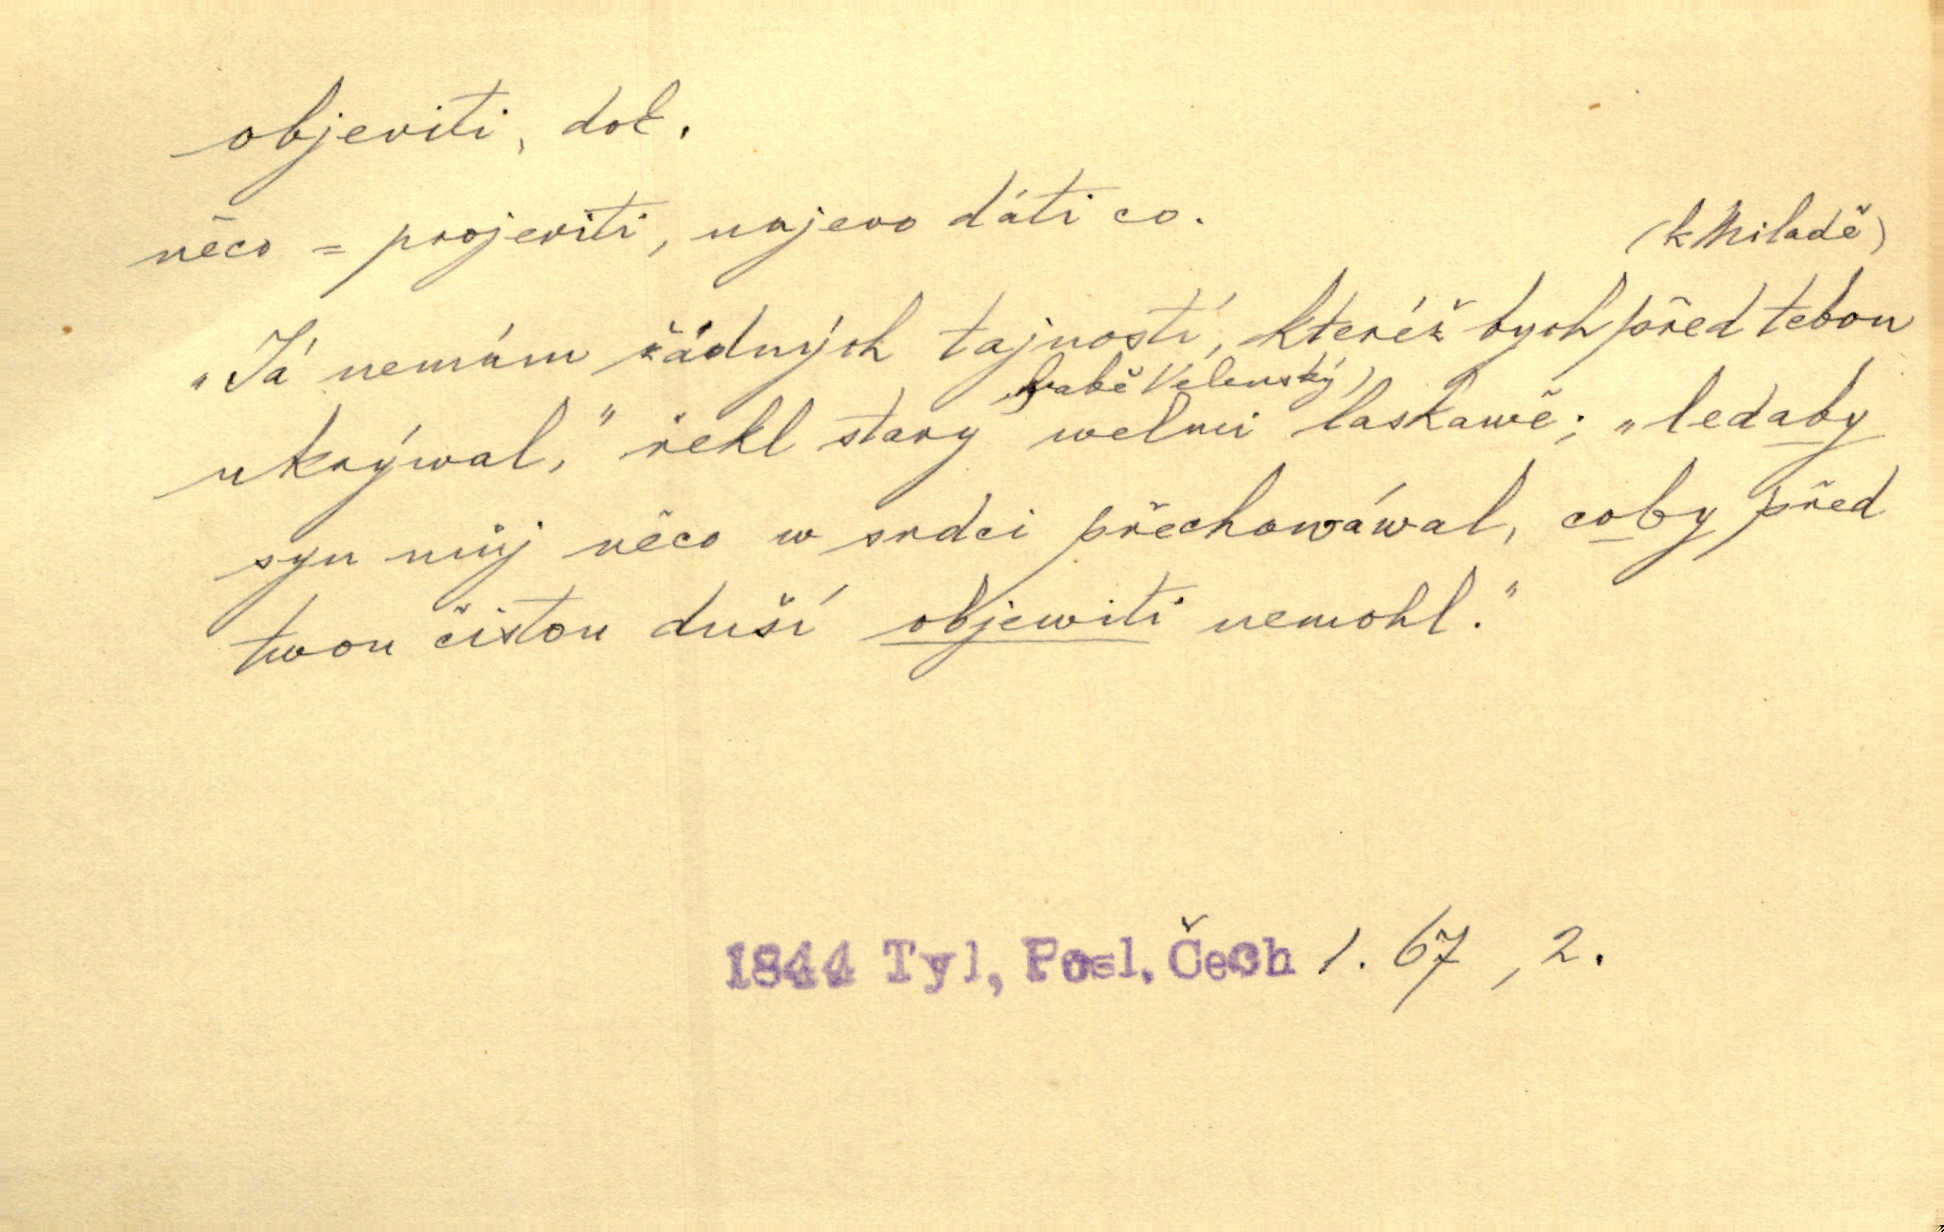 objeviti, dok.
něco = projeviti, najevo dáti co.
(k Miladě)
„Já nemám žádných tajností, kteréž bych před tebou
hrabě Velenský)
ukrýwal,“ řekl starý welmi laskawě; „ledaby
syn můj něco w srdci přechowáwal, coby před
twou čistou duší objewiti nemohl.“
1844 Tyl, Posl. Čech 1. 67, 2.